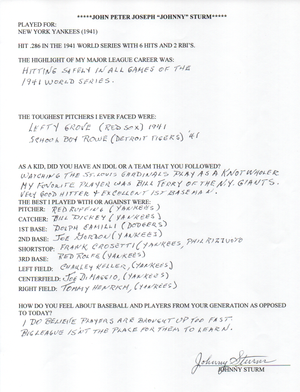 *****JOHN PETER JOSEPH "JOHNNY" STURM*****
PLAYED FOR:
NEW YORK YANKEES (1941)
HIT .286 IN THE 1941 WORLD SERIES WITH 6 HITS AND 2 RBI'S.
THE HIGHLIGHT OF MY MAJOR LEAGUE CAREER WAS:
HITTING SAFELY IN ALL GAMES OF THE
1941 WORLD SERIES.
THE TOUGHEST PITCHERS I EVER FACED WERE:
LEFTY GROVE (RED SOX) 1941
SCHOOL BOY ROWE (DETROIT TIGERS) '41
AS A KID, DID YOU HAVE AN IDOL OR A TEAM THAT YOU FOLLOWED?
WATCHING THE ST. LOUIS CARDINALS PLAY AS A KNOTHOLER
MY FAVORITE PLAYER WAS BILL TERRY OF THE N.Y. GIANTS.
VERY GOOD HITTER & EXCELLENT 1ST BASEMAN.
THE BEST I PLAYED WITH OR AGAINST WERE:
PITCHER: RED RUFFING (YANKEES)
CATCHER: BILL DICKEY (YANKEES)
1ST BASE: DOLPH CAMILLI (DODGERS)
2ND BASE: JOE GORDON (YANKEES)
SHORTSTOP: FRANK CROSETTI (YANKEES, PHIL RIZZUTO
3RD BASE: RED ROLFE (YANKEES)
LEFT FIELD: CHARLEY KELLER, (YANKEES)
CENTERFIELD: JOE DIMAGGIO, (YANKEES)
RIGHT FIELD: TOMMY HENRICH, (YANKEES)
HOW DO YOU FEEL ABOUT BASEBALL AND PLAYERS FROM YOUR GENERATION AS OPPOSED
TO TODAY?
I DO BELIEVE PLAYERS ARE BROUGHT UP TOO FAST
BIG LEAGUE ISN'T THE PLACE FOR THEM TO LEARN.
Johnny Sturm
JOHNNY STURM